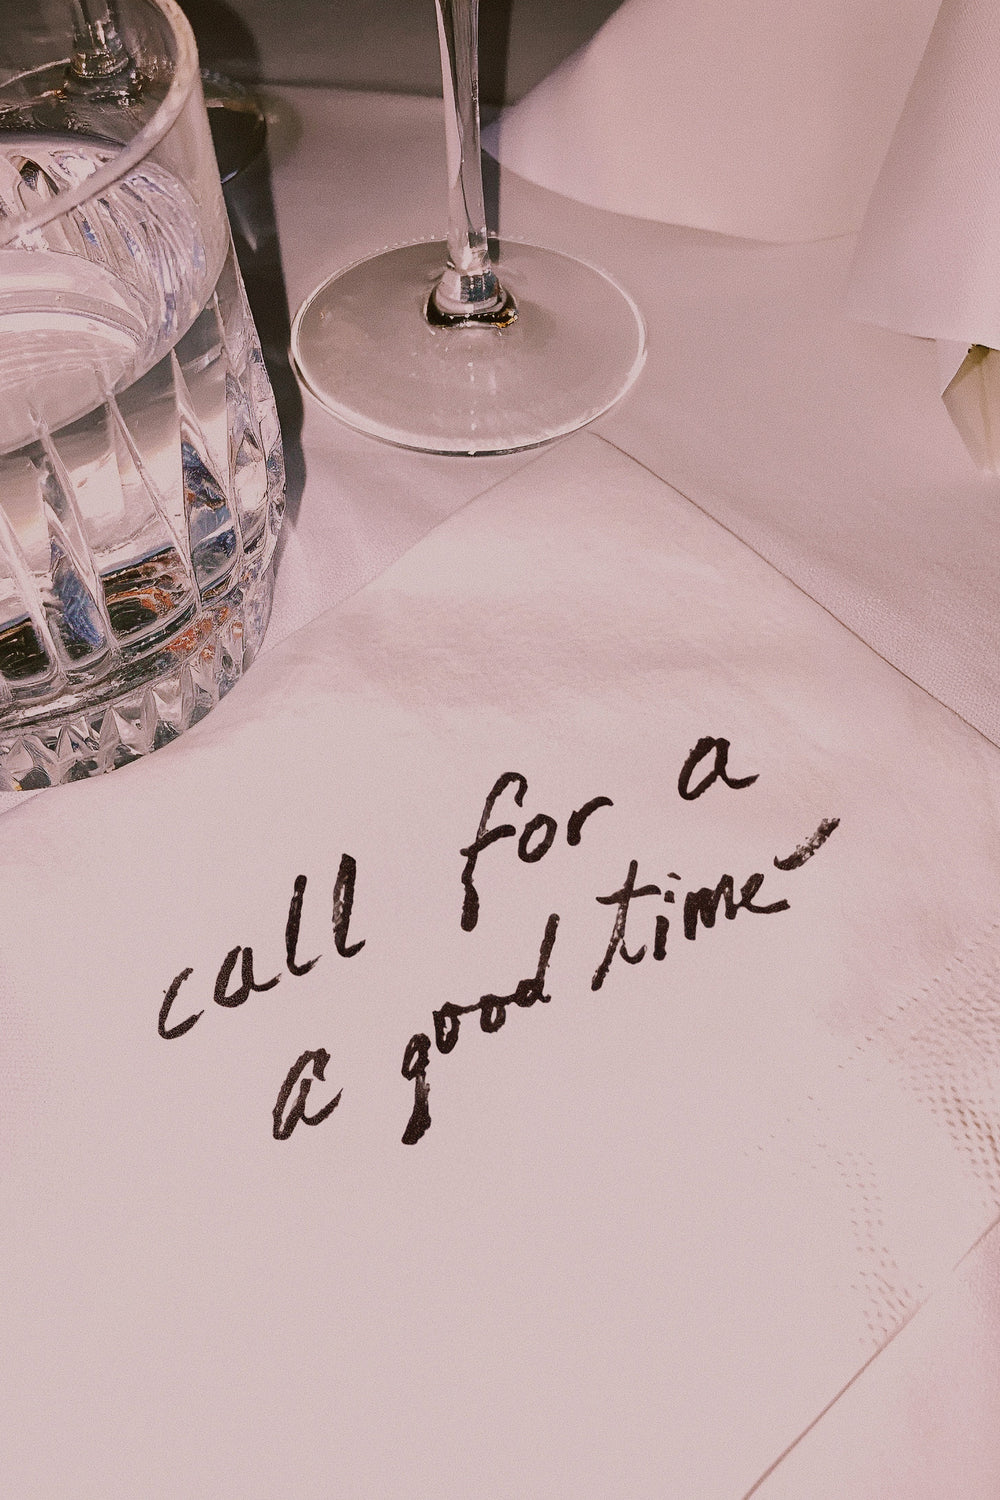 call for a
a good time